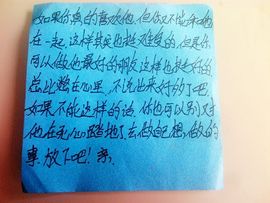 如果你真的喜欢他,但你又不能和他
在一起,这样其实也挺难受的,但是你
可以做他最好的朋友这样也挺好的
总比憋在心里,不说出来好的了吧,
如果不能这样的话,你也可以别对
他在死心踏地了去做自己想做的
事放下吧!亲.